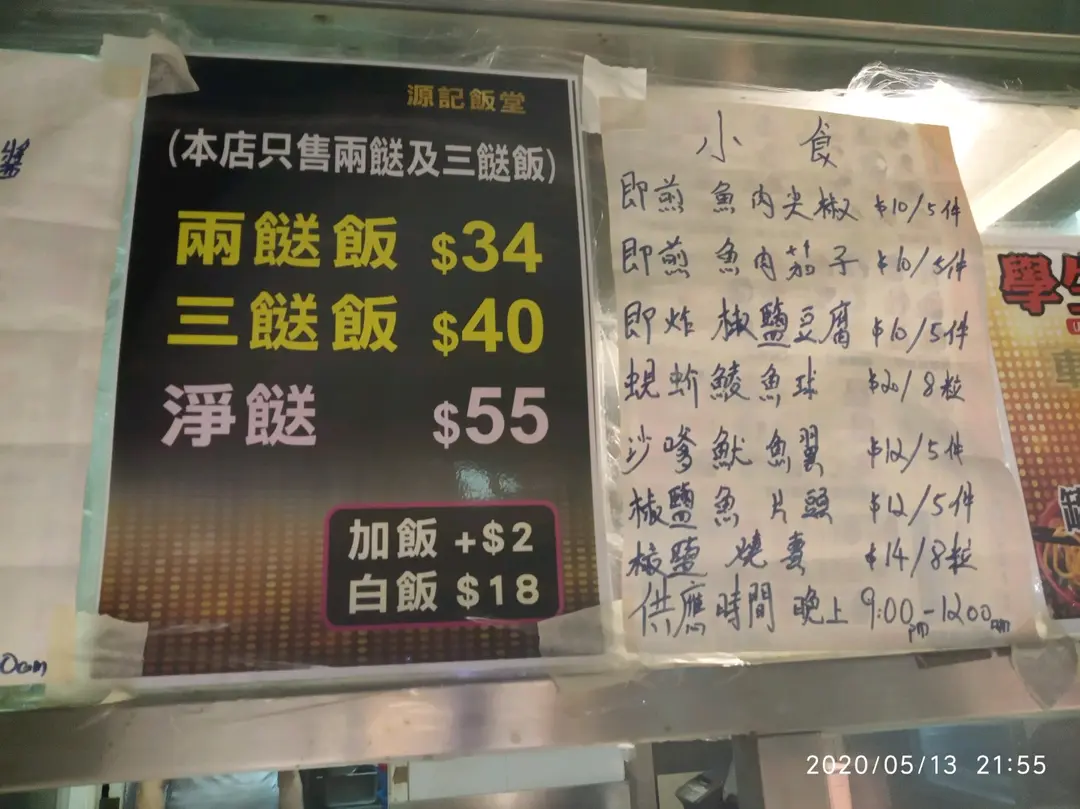 源記飯堂
(本店只售兩餸及三餸飯)
兩餸飯 $34
三餸飯 $40
淨餸 $55
加飯 +$2
白飯 $18
小食
即煎 魚肉尖椒 $10/5件
即煎 魚肉茄子 $10/5件
即炸 椒鹽豆腐 $10/5件
蜆蚧鯪魚球 $20/8粒
沙嗲魷魚翼 $12/5件
椒鹽魚片頭 $12/5件
椒鹽燒賣 $14/8粒
供應時間 晚上 9:00pm-1200am
學生
2020/05/13 21:55